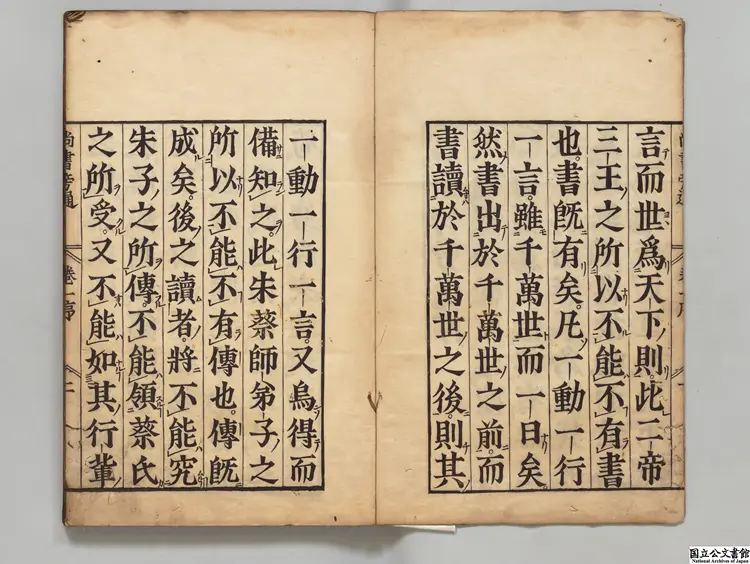 言而世爲天下則此二帝
三王之所以不能不有書
也。書既有矣。凡一動一行
一言。雖千萬世而一日矣
然書出於千萬世之前而
書讀於千萬世之後。則其
一動一行一言。又烏得而
備知之。此朱蔡師弟子之
所以不能不有傳也。傳既
成矣。後之讀者。將不能究
朱子之所傳。不能領蔡氏
之所受。又不能如其行輩
尚書旁通 卷一序 二
国立公文書館
National Archives of Japan